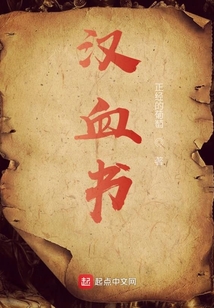 汉血书
正经的 著
起点中文网